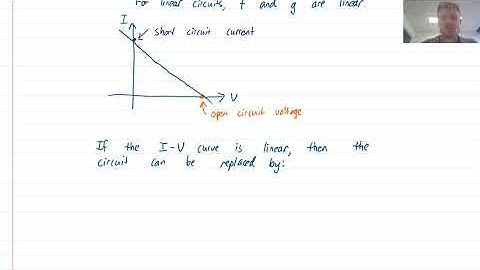 For linear circuits, f and g are linear
I
short circuit current
V
open circuit voltage
If the I-V curve is linear, then the
circuit can be replaced by: